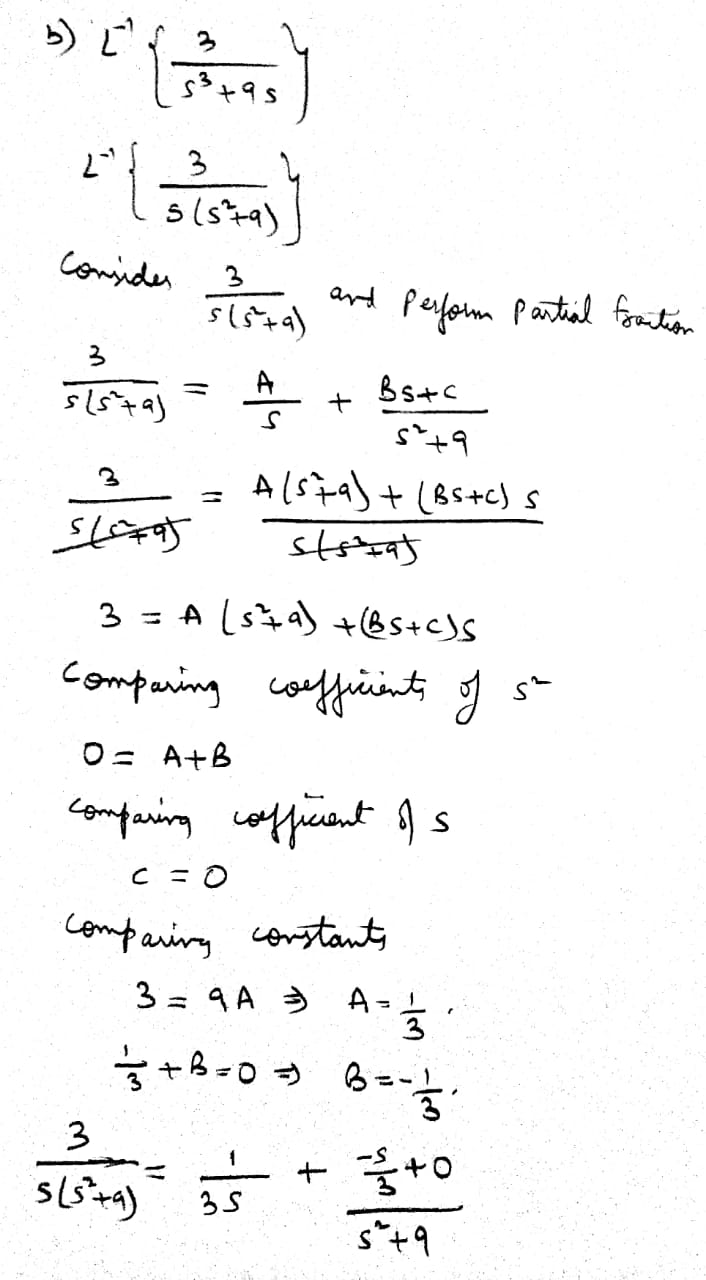 b) L⁻¹ { 3 / (s³+9s) }
L⁻¹ { 3 / (s(s²+9)) }
Consider 3 / (s(s²+9)) and perform partial fraction
3 / (s(s²+9)) = A / s + (Bs+c) / (s²+9)
3 / (s(s²+9)) = (A(s²+9) + (Bs+c) s) / (s(s²+9))
3 = A (s²+9) + (Bs+c)s
Comparing coefficients of s²
0 = A+B
comparing coefficient of s
c = 0
Comparing constants
3 = 9A ⇒ A = 1/3 .
1/3 + B = 0 ⇒ B = -1/3 .
3 / (s(s²+9)) = 1 / (3s) + (-s/3 + 0) / (s²+9)